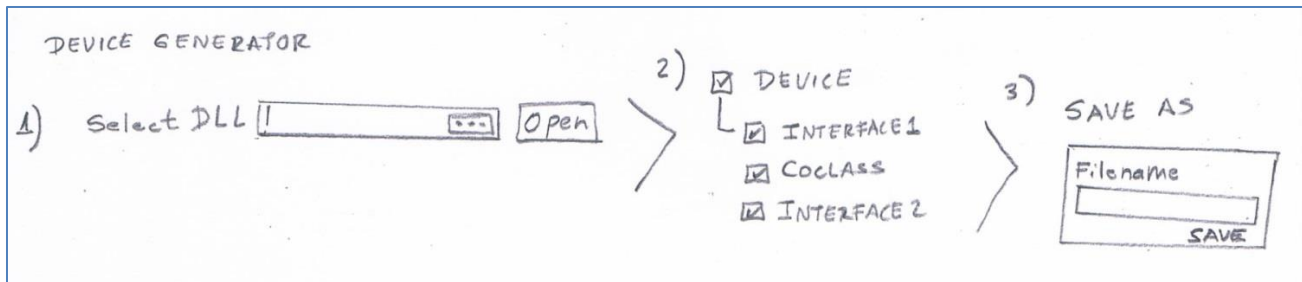 DEVICE GENERATOR
1) Select DLL ... Open
2) DEVICE
INTERFACE1
COCLASS
INTERFACE 2
3) SAVE AS
Filename
SAVE